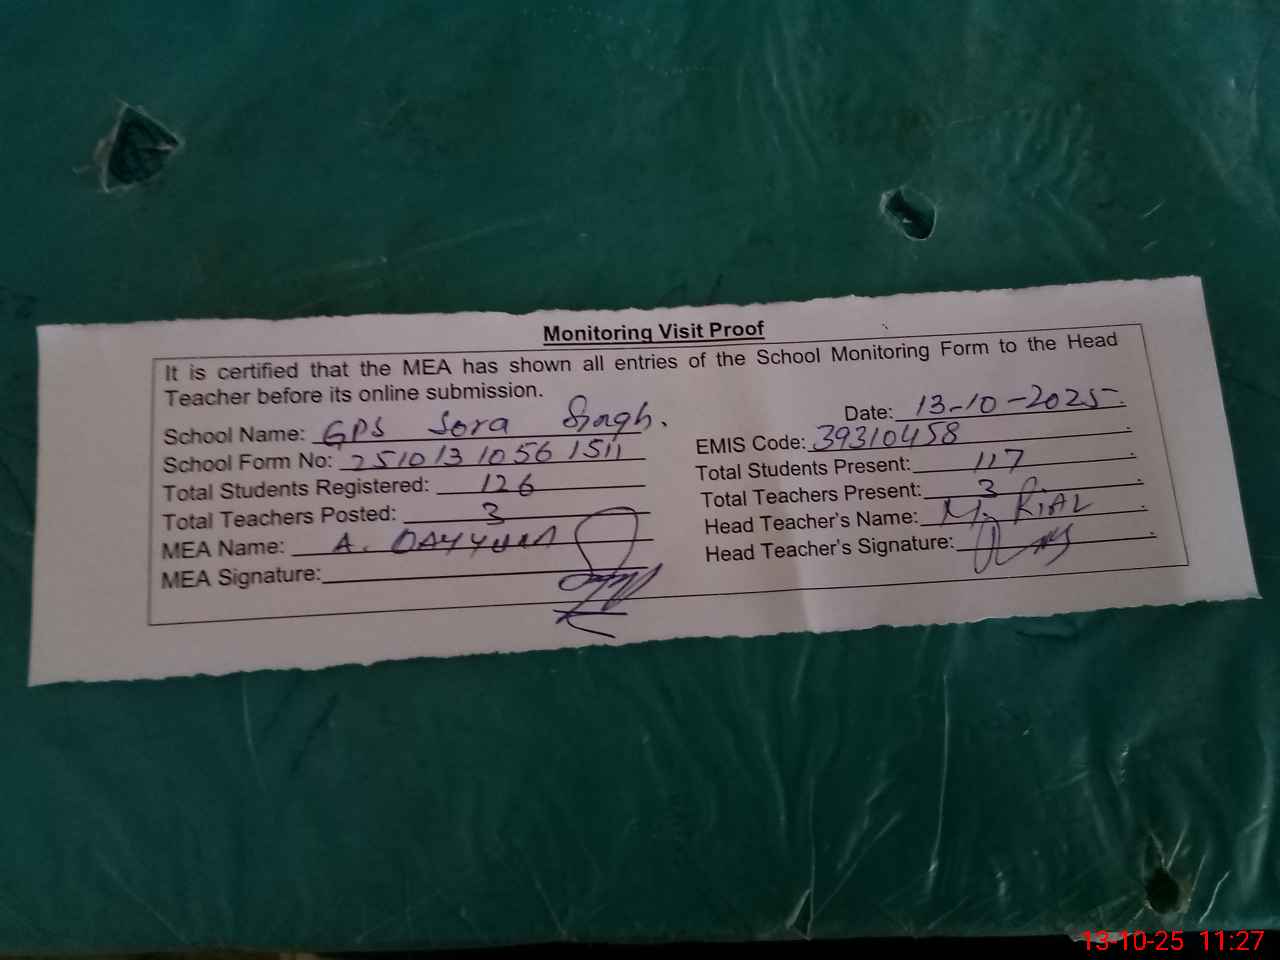 Monitoring Visit Proof
It is certified that the MEA has shown all entries of the School Monitoring Form to the Head
Teacher before its online submission.
Date: 13-10-2025
School Name: GPS Sora Singh.
EMIS Code: 39310458
School Form No: 2510131056 1511
Total Students Present: 117
Total Students Registered: 126
Total Teachers Present: 3
Total Teachers Posted: 3
Head Teacher's Name: M.
MEA Name: A.
Head Teacher's Signature:
MEA Signature:
13-10-25 11:27